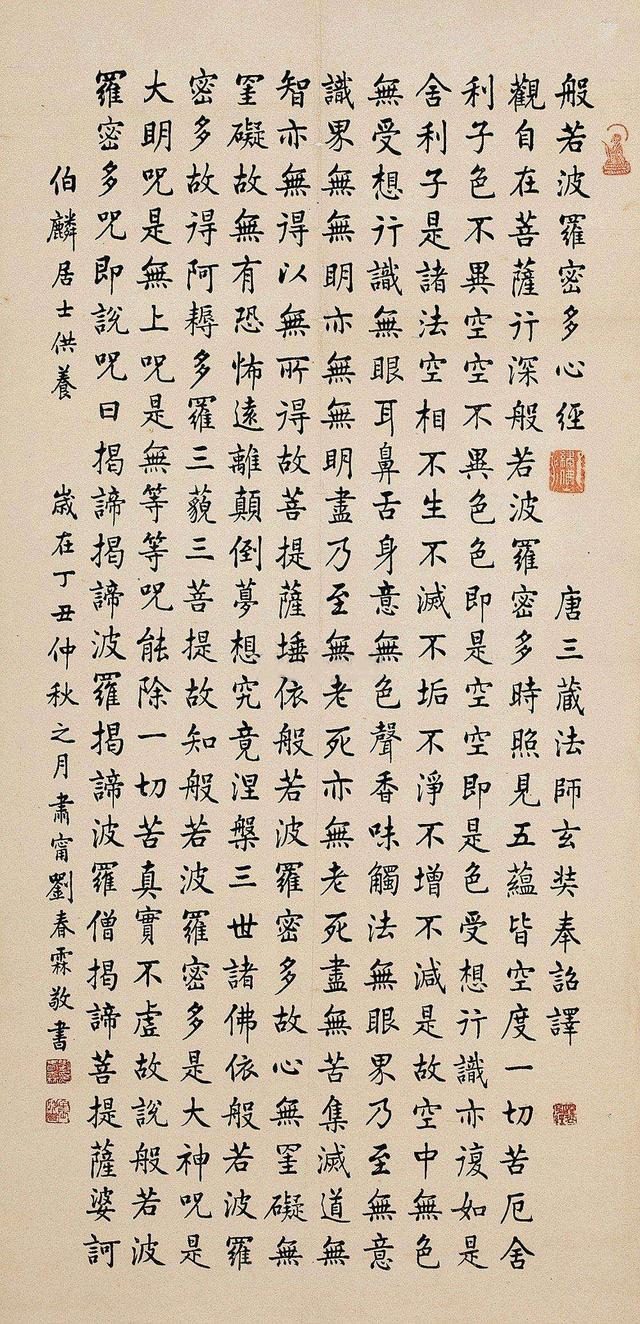 般若波羅密多心經 唐三藏法師玄奘奉詔譯
觀自在菩薩行深般若波羅密多時照見五蘊皆空度一切苦厄舍
利子色不異空空不異色色即是空空即是色受想行識亦復如是
舍利子是諸法空相不生不滅不垢不淨不增不減是故空中無色
無受想行識無眼耳鼻舌身意無色聲香味觸法無眼界乃至無意
識界無無明亦無無明盡乃至無老死亦無老死盡無苦集滅道無
智亦無得以無所得故菩提薩埵依般若波羅密多故心無罣礙無
罣礙故無有恐怖遠離顛倒夢想究竟涅槃三世諸佛依般若波羅
密多故得阿耨多羅三藐三菩提故知般若波羅密多是大神咒是
大明咒是無上咒是無等等咒能除一切苦真實不虛故說般若波
羅密多咒即說咒曰揭諦揭諦波羅揭諦波羅僧揭諦菩提薩婆訶
伯麟居士供養 歲在丁丑仲秋之月肅甯劉春霖敬書